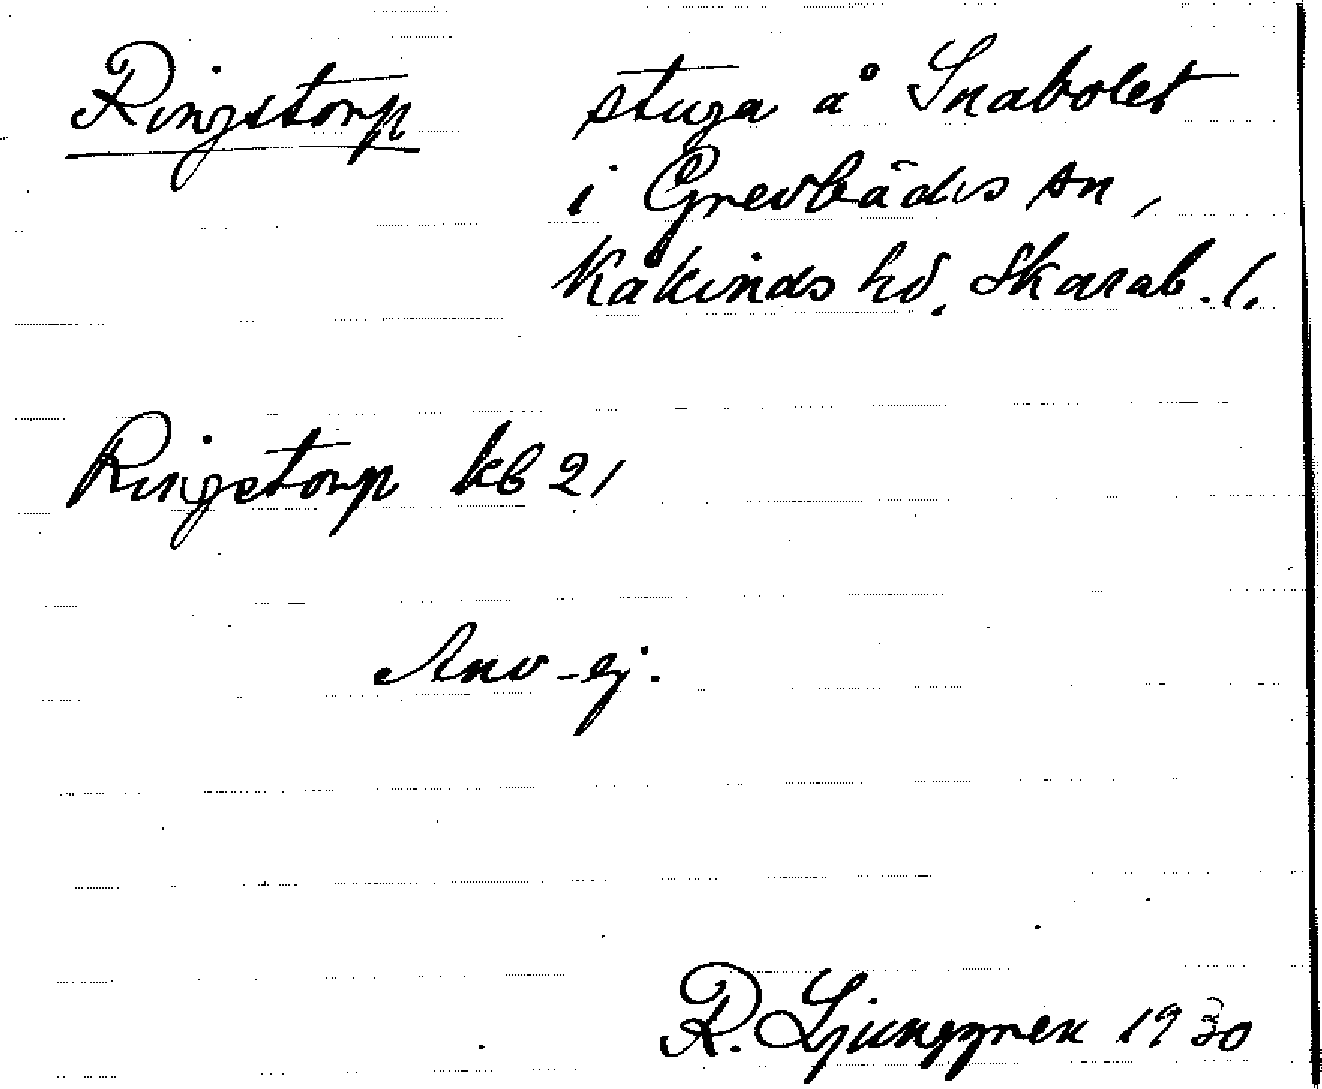 Ringstorp stuga å Snabolet
i Grevbäcks sn,
Kåkinds hd, Skarab. l.
Ringstorp kb 21
Anv - ej.
R. Ljunggren 1930